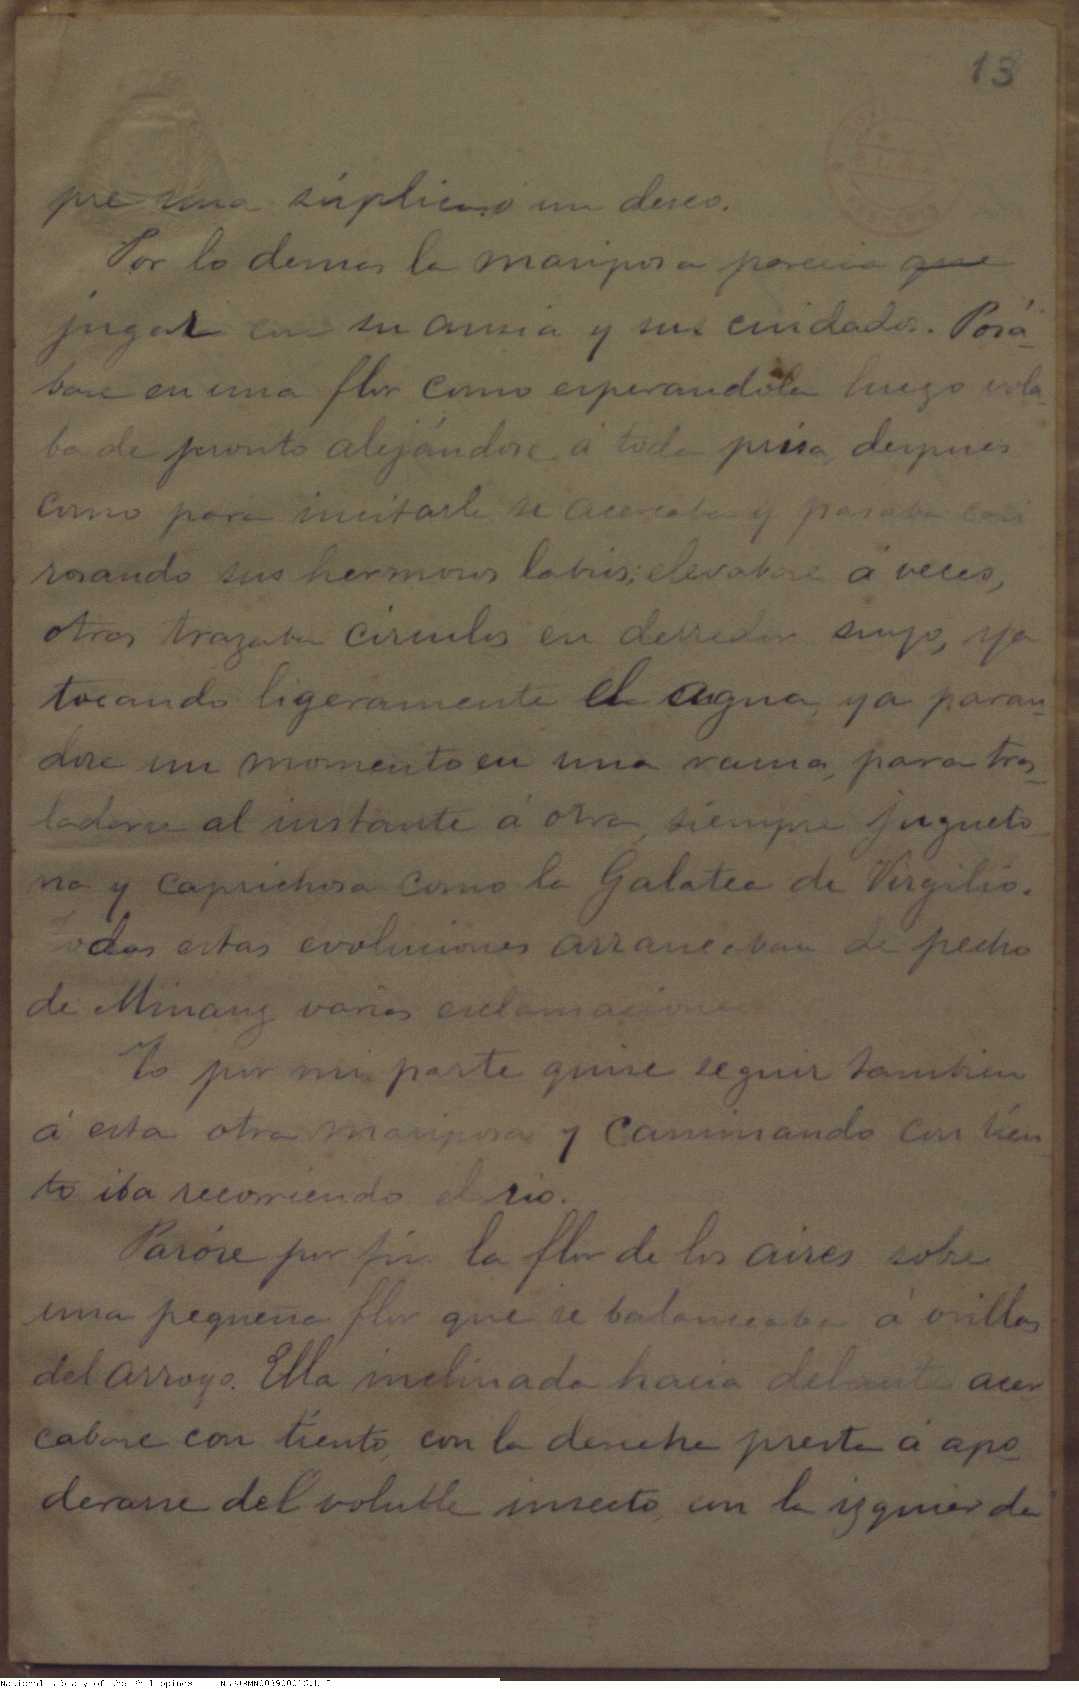 13
pre una súplica ó un deseo.
Por lo demas la mariposa parecia que
jugar con su ansia y sus cuidados. Posá-
base en una flor como esperandola luego vola-
ba de pronto alejándose á toda prisa, despues
como para incitarle se acercaba y pasaba casi
rosando sus hermosos labios; elevabase á veces,
otras trazaba círculos en derredor suyo, ya
tocando ligeramente el agua, ya paran-
dose un momento en una rama, para tras-
ladarse al instante á otra, siempre jugueto-
na y caprichosa como la Galatea de Virgilio.
Todas estas evoluciones arrancaban de pecho
de Minang varias exclamaciones
Yo por mi parte quise seguir tambien
á esta otra mariposa y caminando con tien-
to iba recorriendo el rio.
Paróse por fin la flor de los aires sobre
una pequeña flor que se balanceaba á orillas
del arroyo. Ella inclinada hacia delante acer-
cabase con tiento, con la derecha presta á apo-
derarse del voluble insecto, con la izquierda
National Library of the Philippines